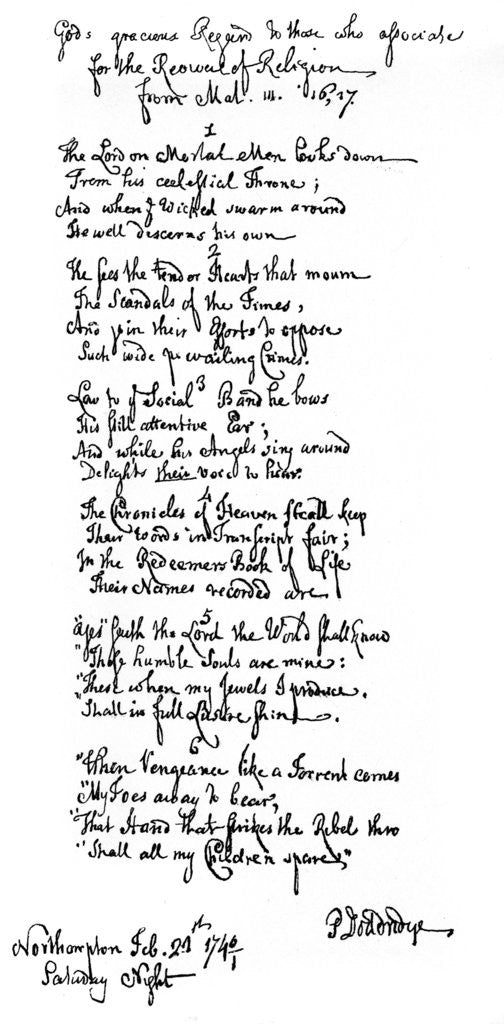 Gods gracious Regard to those who associate
for the Revival of Religion
from Mal. III. 16, 17.
1
The Lord on Mortal Men looks down
From his ceelestial Throne;
And when ye Wicked swarm around
He well descerns his own
2
He sees the tender Hearts that mourn
The Scandals of the Times,
And join their Efforts to oppose
Such wide prevailing Crimes.
3
Low to ye Social Band he bows
His still attentive Ear;
And while his Angels sing around
Delights their voice to hear.
4
The Chronicles of Heaven shall keep
Their Words in Transcript fair;
In the Redeemers Book of Life
Their Names recorded are
5
"Yes" saith the Lord the World shall know
"These humble Souls are mine:
"These when my Jewels I produce.
"Shall in full Lustre Shine.
6
"When Vengeance like a Torrent comes
"My Foes away to bear,
"That Hand that strikes the Rebel thro
"Shall all my Children spare"
P Doddridge
Northampton Feb. 21st 174
Saturday Night